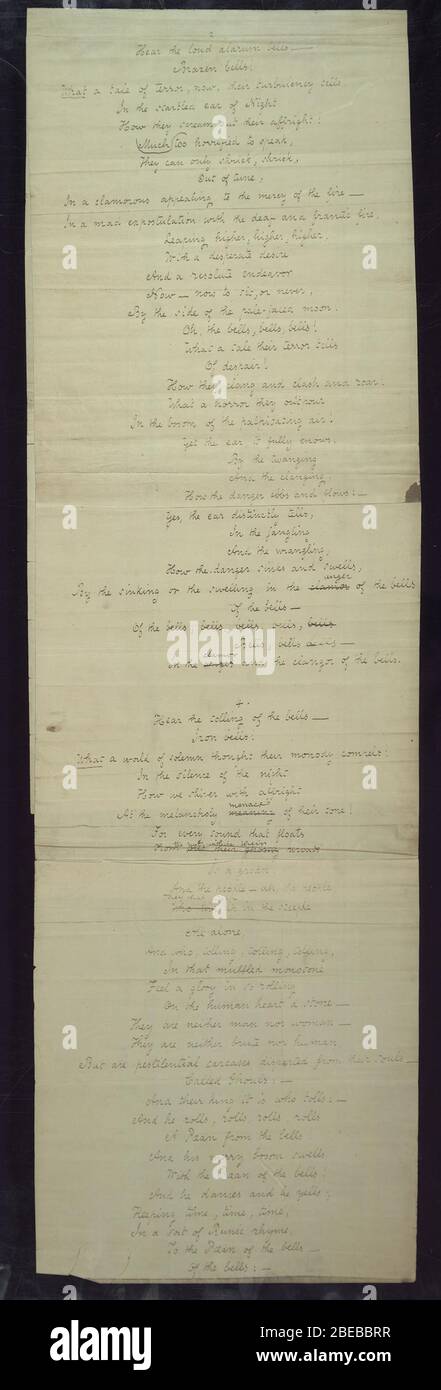 Hear the loud alarum bells—
Brazen bells!
What a tale of terror, now, their turbulency tells
In the startled ear of Night
How they scream out their affright!
Much too horrified to speak,
They can only shriek, shriek,
Out of tune,
In a clamorous appealing to the mercy of the fire—
In a mad expostulation with the deaf and frantic fire,
Leaping higher, higher, higher,
With a desperate desire
And a resolute endeavor
Now—now to sit, or never,
By the side of the pale-faced moon.
Oh, the bells, bells, bells!
What a tale their terror tells
Of despair!
How they clang and clash and roar!
What a horror they outpour
In the bosom of the palpitating air!
Yet the ear, it fully knows,
By the twanging
And the clanging,
How the danger ebbs and flows:—
Yes, the ear distinctly tells,
In the jangling
And the wrangling,
How the danger sinks and swells,
anger
By the sinking or the swelling in the clamor of the bells
Of the bells—
Of the bells, bells, bells, bells, bells
Bells, bells, bells—
clamor
In the anger and the clangor of the bells.
4.
Hear the tolling of the bells—
Iron bells!
What a world of solemn thought their monody compels!
In the silence of the night
How we shiver with affright
menace
At the melancholy meaning of their tone!
For every sound that floats
Is a groan
And the people—ah, the people
in the steeple
All alone,
And who, tolling, tolling, tolling,
In that muffled monotone
Feel a glory in so rolling
On the human heart a stone—
They are neither man nor woman—
They are neither brute nor human,
But are pestilential carcases disparted from their souls—
Called Ghouls:—
And their king it is who tolls:—
And he rolls, rolls, rolls, rolls
A Pæan from the bells
And his merry bosom swells
With the Pæan of the bells!
And he dances and he yells;
Keeping time, time, time,
In a sort of Runic rhyme,
To the Pæan of the bells—
Of the bells:—
alamy
Image ID: 2BEBBRR
www.alamy.com